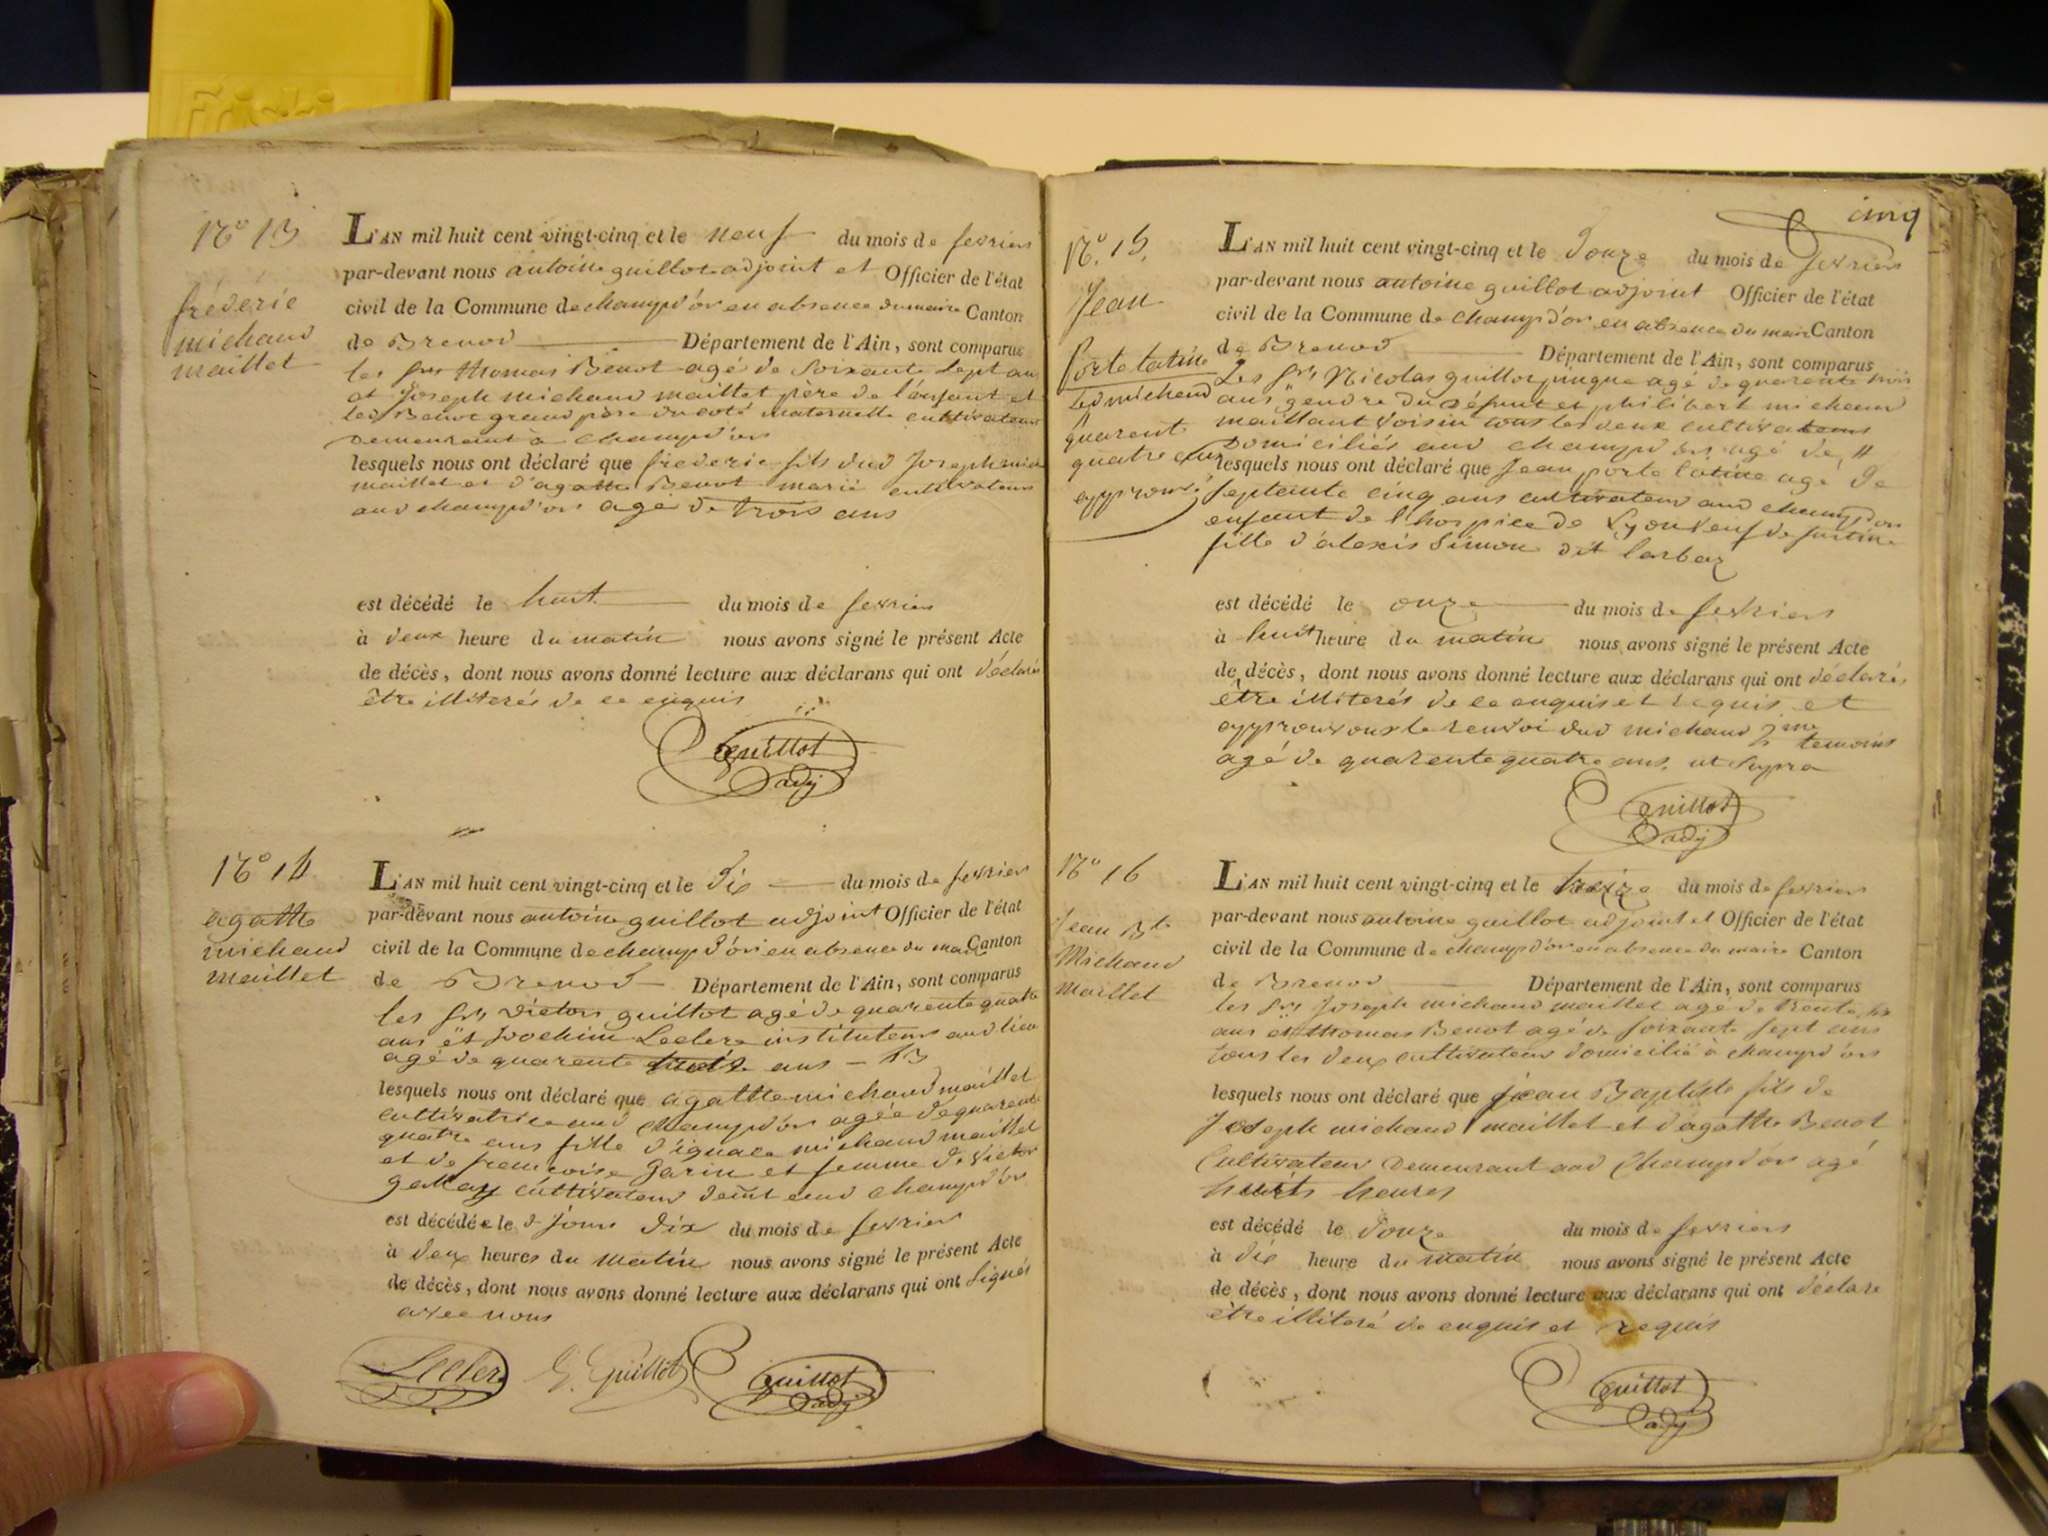 N.° 13
fréderic
michaud
maillet
L'AN mil huit cent vingt-cinq et le neuf du mois de fevriers
par-devant nous antoine guillot adjoint et Officier de l'état
civil de la Commune de champd'or en absence du maire Canton
de Brenod Département de l'Ain, sont comparus
les Srs thomas Benot agé de soixante sept ans
et Joseph michaud maillet père de l'enfant et
led Benot grand père du coté maternelle cultivateurs
demeurant à champd'or
lesquels nous ont déclaré que frederic fils dud Joseph
maillet et d'agathe Benot marié cultivateurs
aud champd'or agé de trois ans
est décédé le huit du mois de fevriers
à deux heure du matin nous avons signé le présent Acte
de décès, dont nous avons donné lecture aux déclarans qui ont déclarés
être illiterés de ce enquis
Guillot
adj
N.° 14
agathe
michaud
maillet
L'AN mil huit cent vingt-cinq et le dix du mois de fevriers
par-devant nous antoine guillot adjoint Officier de l'état
civil de la Commune de champd'or en absence du maire Canton
de Brenod Département de l'Ain, sont comparus
les Srs victor guillot agé de quarente quatre
ans et Joachim Leclerc instituteur aud lieu
agé de quarente ans
lesquels nous ont déclaré que agathe michaud maillet
cultivatrice aud champd'or agée de quarente
quatre ans fille d'ignace michaud maillet
et de francoise Jarin et femme de victor
cultivateurs demt aud champd'or
est décédée le d jour dix du mois de fevriers
à deux heures du matin nous avons signé le présent Acte
de décès, dont nous avons donné lecture aux déclarans qui ont signés
avec nous
Lecler G. Guillot Guillot
adj
cinq
N.° 15.
Jean
Porte latine
led michaud
quarente
quatre ans
approuvé
L'AN mil huit cent vingt-cinq et le douze du mois de fevriers
par-devant nous antoine guillot adjoint Officier de l'état
civil de la Commune de champd'or en absence du maire Canton
de Brenod Département de l'Ain, sont comparus
Les Srs Nicolas guillot agé de quarente trois
ans gendre du défunt et philibert michaud
maillant voisin tous les deux cultivateurs
domiciliés aud champd'or, agé de "
lesquels nous ont déclaré que Jean porte latine agé de
septente cinq ans cultivateur aud champd'or
enfant de l'hospice de Lyon veuf de Justine
fille d'alexis Simon dit larbaz
est décédé le onze du mois de fevriers
à huit heure du matin nous avons signé le présent Acte
de décès, dont nous avons donné lecture aux déclarans qui ont déclarés
être illiterés de ce enquis et requis et
approuvons le renvoi dud michaud 2me temoins
agé de quarente quatre ans. ut supra
Guillot
adj
N.° 16
Jean Bte
Michaud
maillet
L'AN mil huit cent vingt-cinq et le treize du mois de fevriers
par-devant nous antoine guillot adjoint et Officier de l'état
civil de la Commune de champd'or en absence du maire Canton
de Brenod Département de l'Ain, sont comparus
les Srs Joseph michaud maillet agé de trente six
ans et thomas Benot agé de soixante sept ans
tous les deux cultivateurs domicilié à champd'or
lesquels nous ont déclaré que jean Baptiste fils de
Joseph michaud maillet et d'agathe Benot
Cultivateurs demeurant aud Champd'or agé
huits heures
est décédé le douze du mois de fevriers
à dix heure du matin nous avons signé le présent Acte
de décès, dont nous avons donné lecture aux déclarans qui ont déclaré
être illiteré de enquis et requis
Guillot
adj